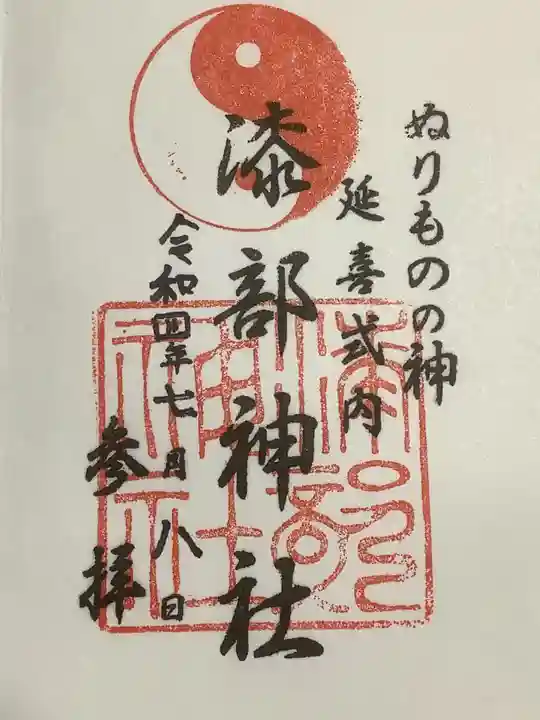 ぬりものの神
延喜式内
漆部神社
令和四年七月八日
参拝
漆部
神社